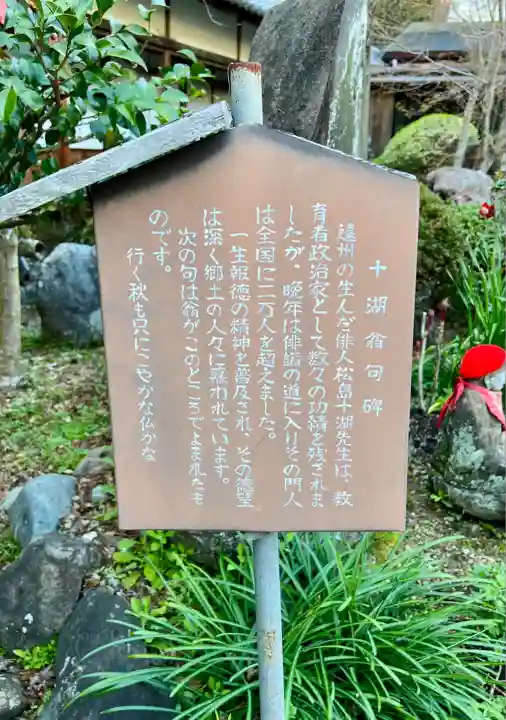 十湖翁句碑
遠州の生んだ俳人松島十湖先生は、教
育者政治家として数々の功績を残されま
したが、晩年は俳諧の道に入りその門人
は全国に二万人を超えました。
一生報徳の精神を普及され、その徳望
は深く郷土の人々に慕われています。
次の句は翁がこのところでよまれたも
のです。
行く秋も只にこやかな仏かな